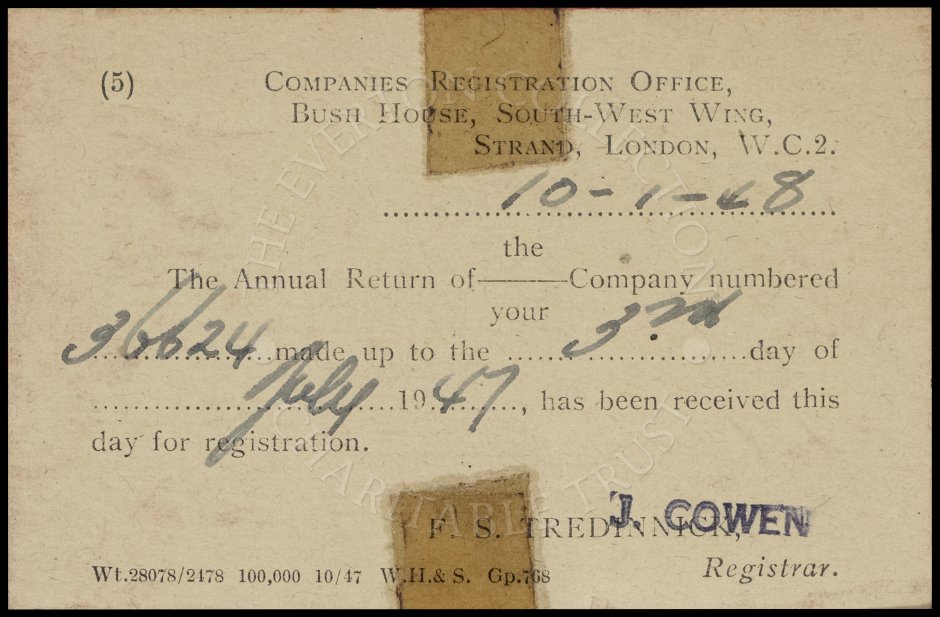 (5) COMPANIES REGISTRATION OFFICE,
BUSH HOUSE, SOUTH-WEST WING,
STRAND, LONDON, W.C.2.
10-1-48
the
The Annual Return of———Company numbered
your
36624 made up to the 3rd day of
July 1947, has been received this
day for registration.
F. S. TREDINNICK,
J. COWEN
Registrar.
Wt.28078/2178 100,000 10/47 W.H.& S. Gp.768
THE EVERTON COLLECTION
CHARITABLE TRUST